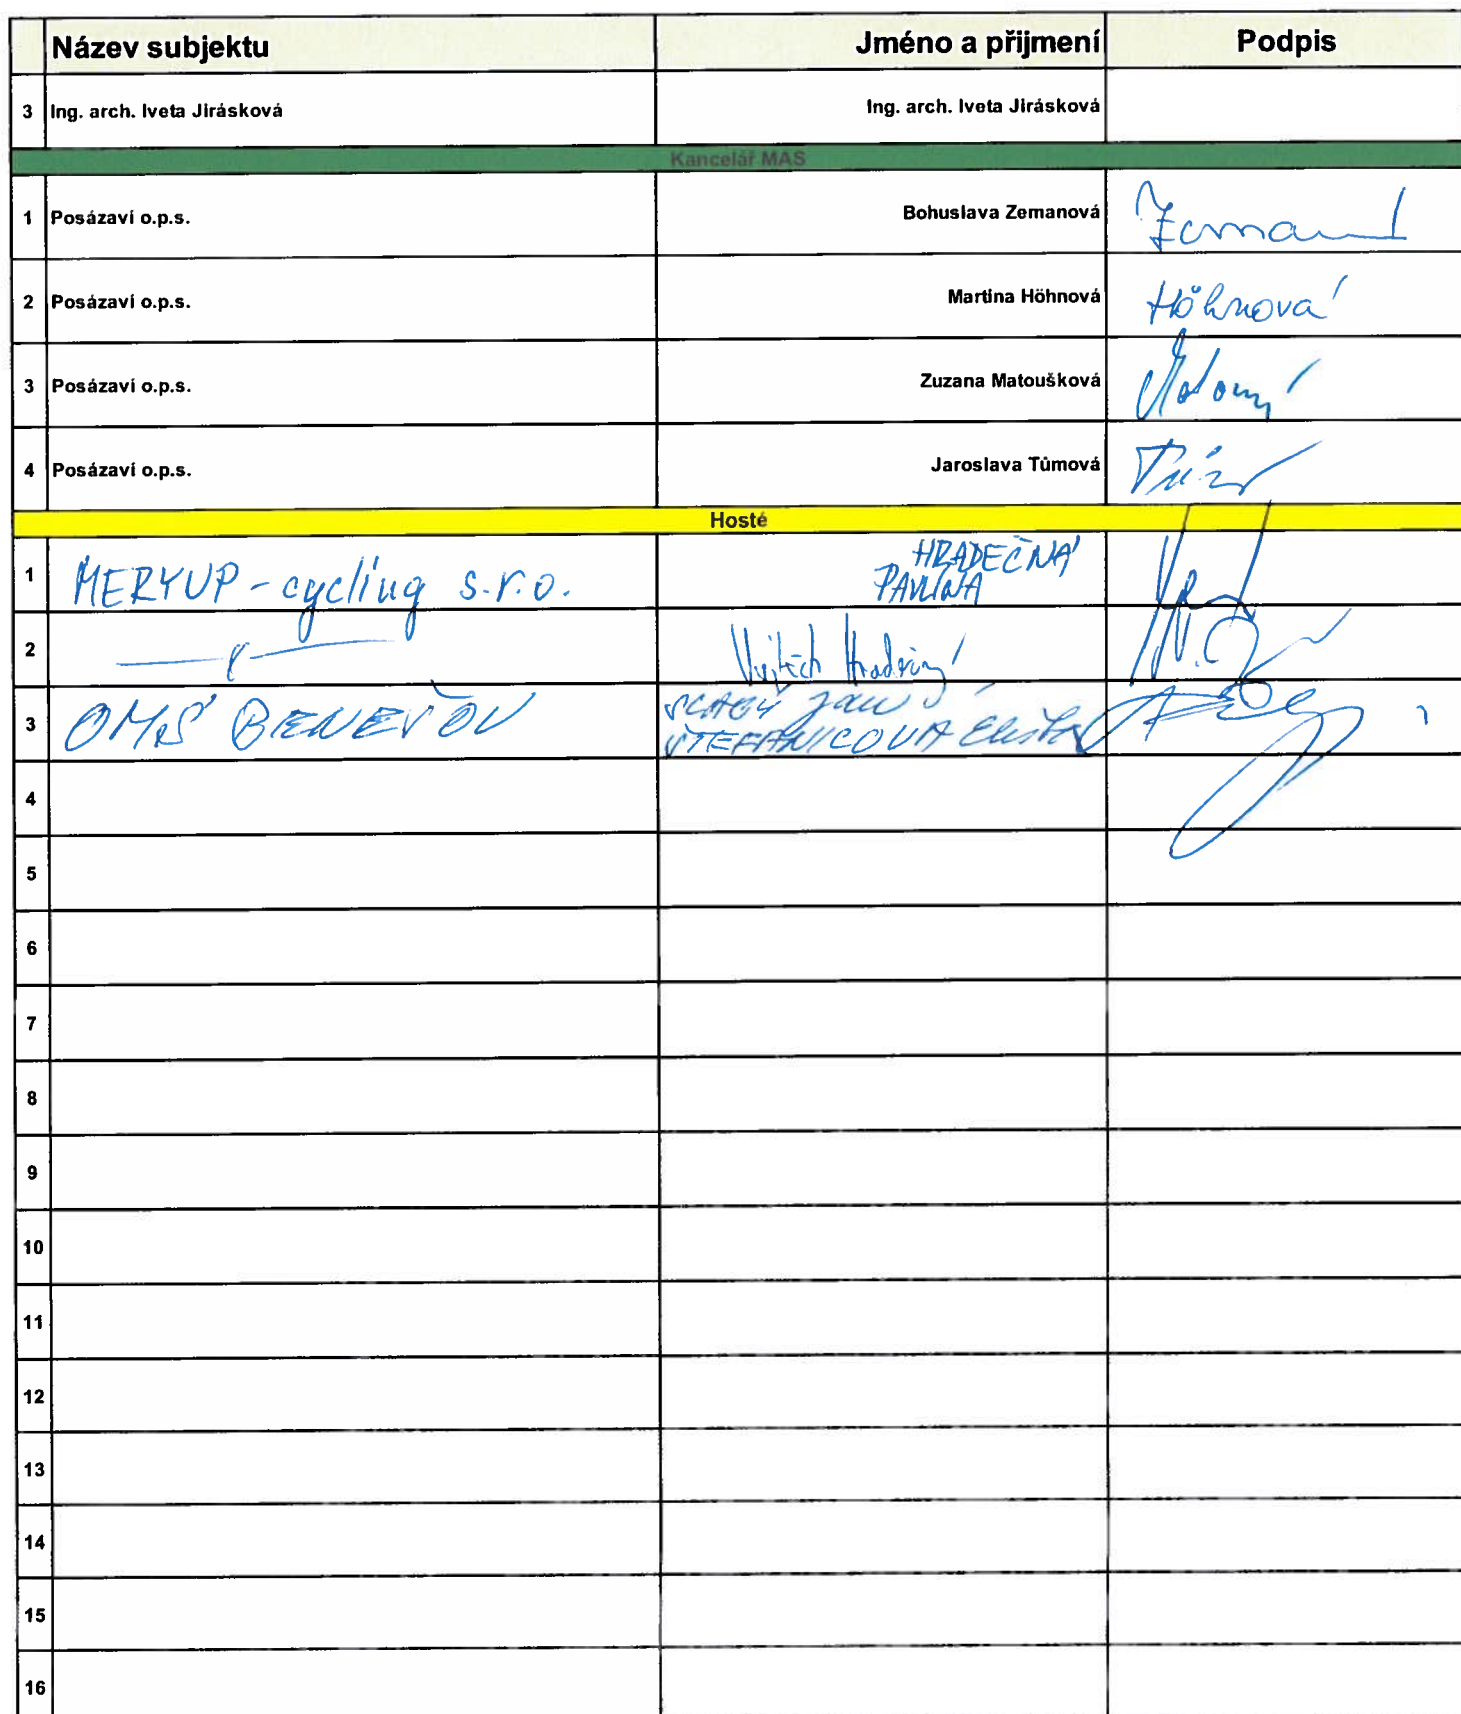 Název subjektu Jméno a přijmení Podpis
3 Ing. arch. Iveta Jirásková Ing. arch. Iveta Jirásková
Kancelář MAS
1 Posázaví o.p.s. Bohuslava Zemanová
2 Posázaví o.p.s. Martina Höhnová Höhnová
3 Posázaví o.p.s. Zuzana Matoušková
4 Posázaví o.p.s. Jaroslava Tůmová
Hosté
1 MERYUP - cycling s.r.o. HRADEČNÁ
PAVLÍNA
2 Vojtěch Hradečný
3 BENEŠOV Jan
ŠTEFANICOVÁ Eliška
4
5
6
7
8
9
10
11
12
13
14
15
16